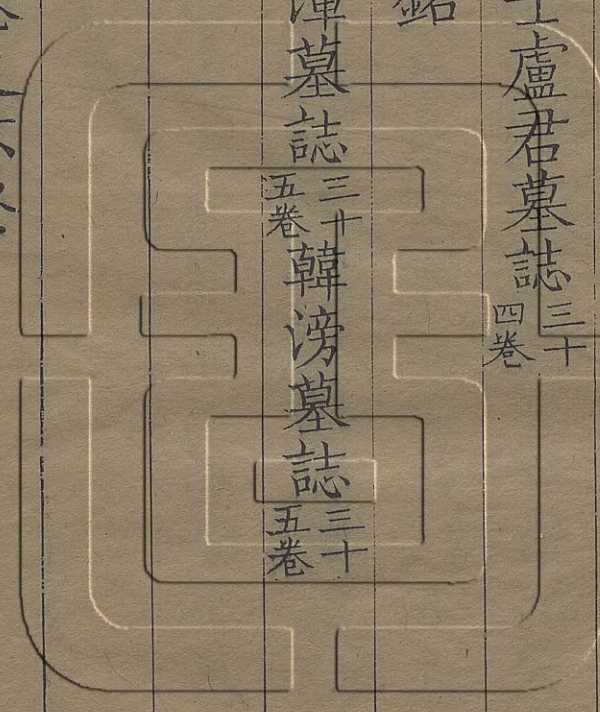 盧君墓誌三十四卷
銘
墓誌三十五卷韓滂墓誌三十五卷